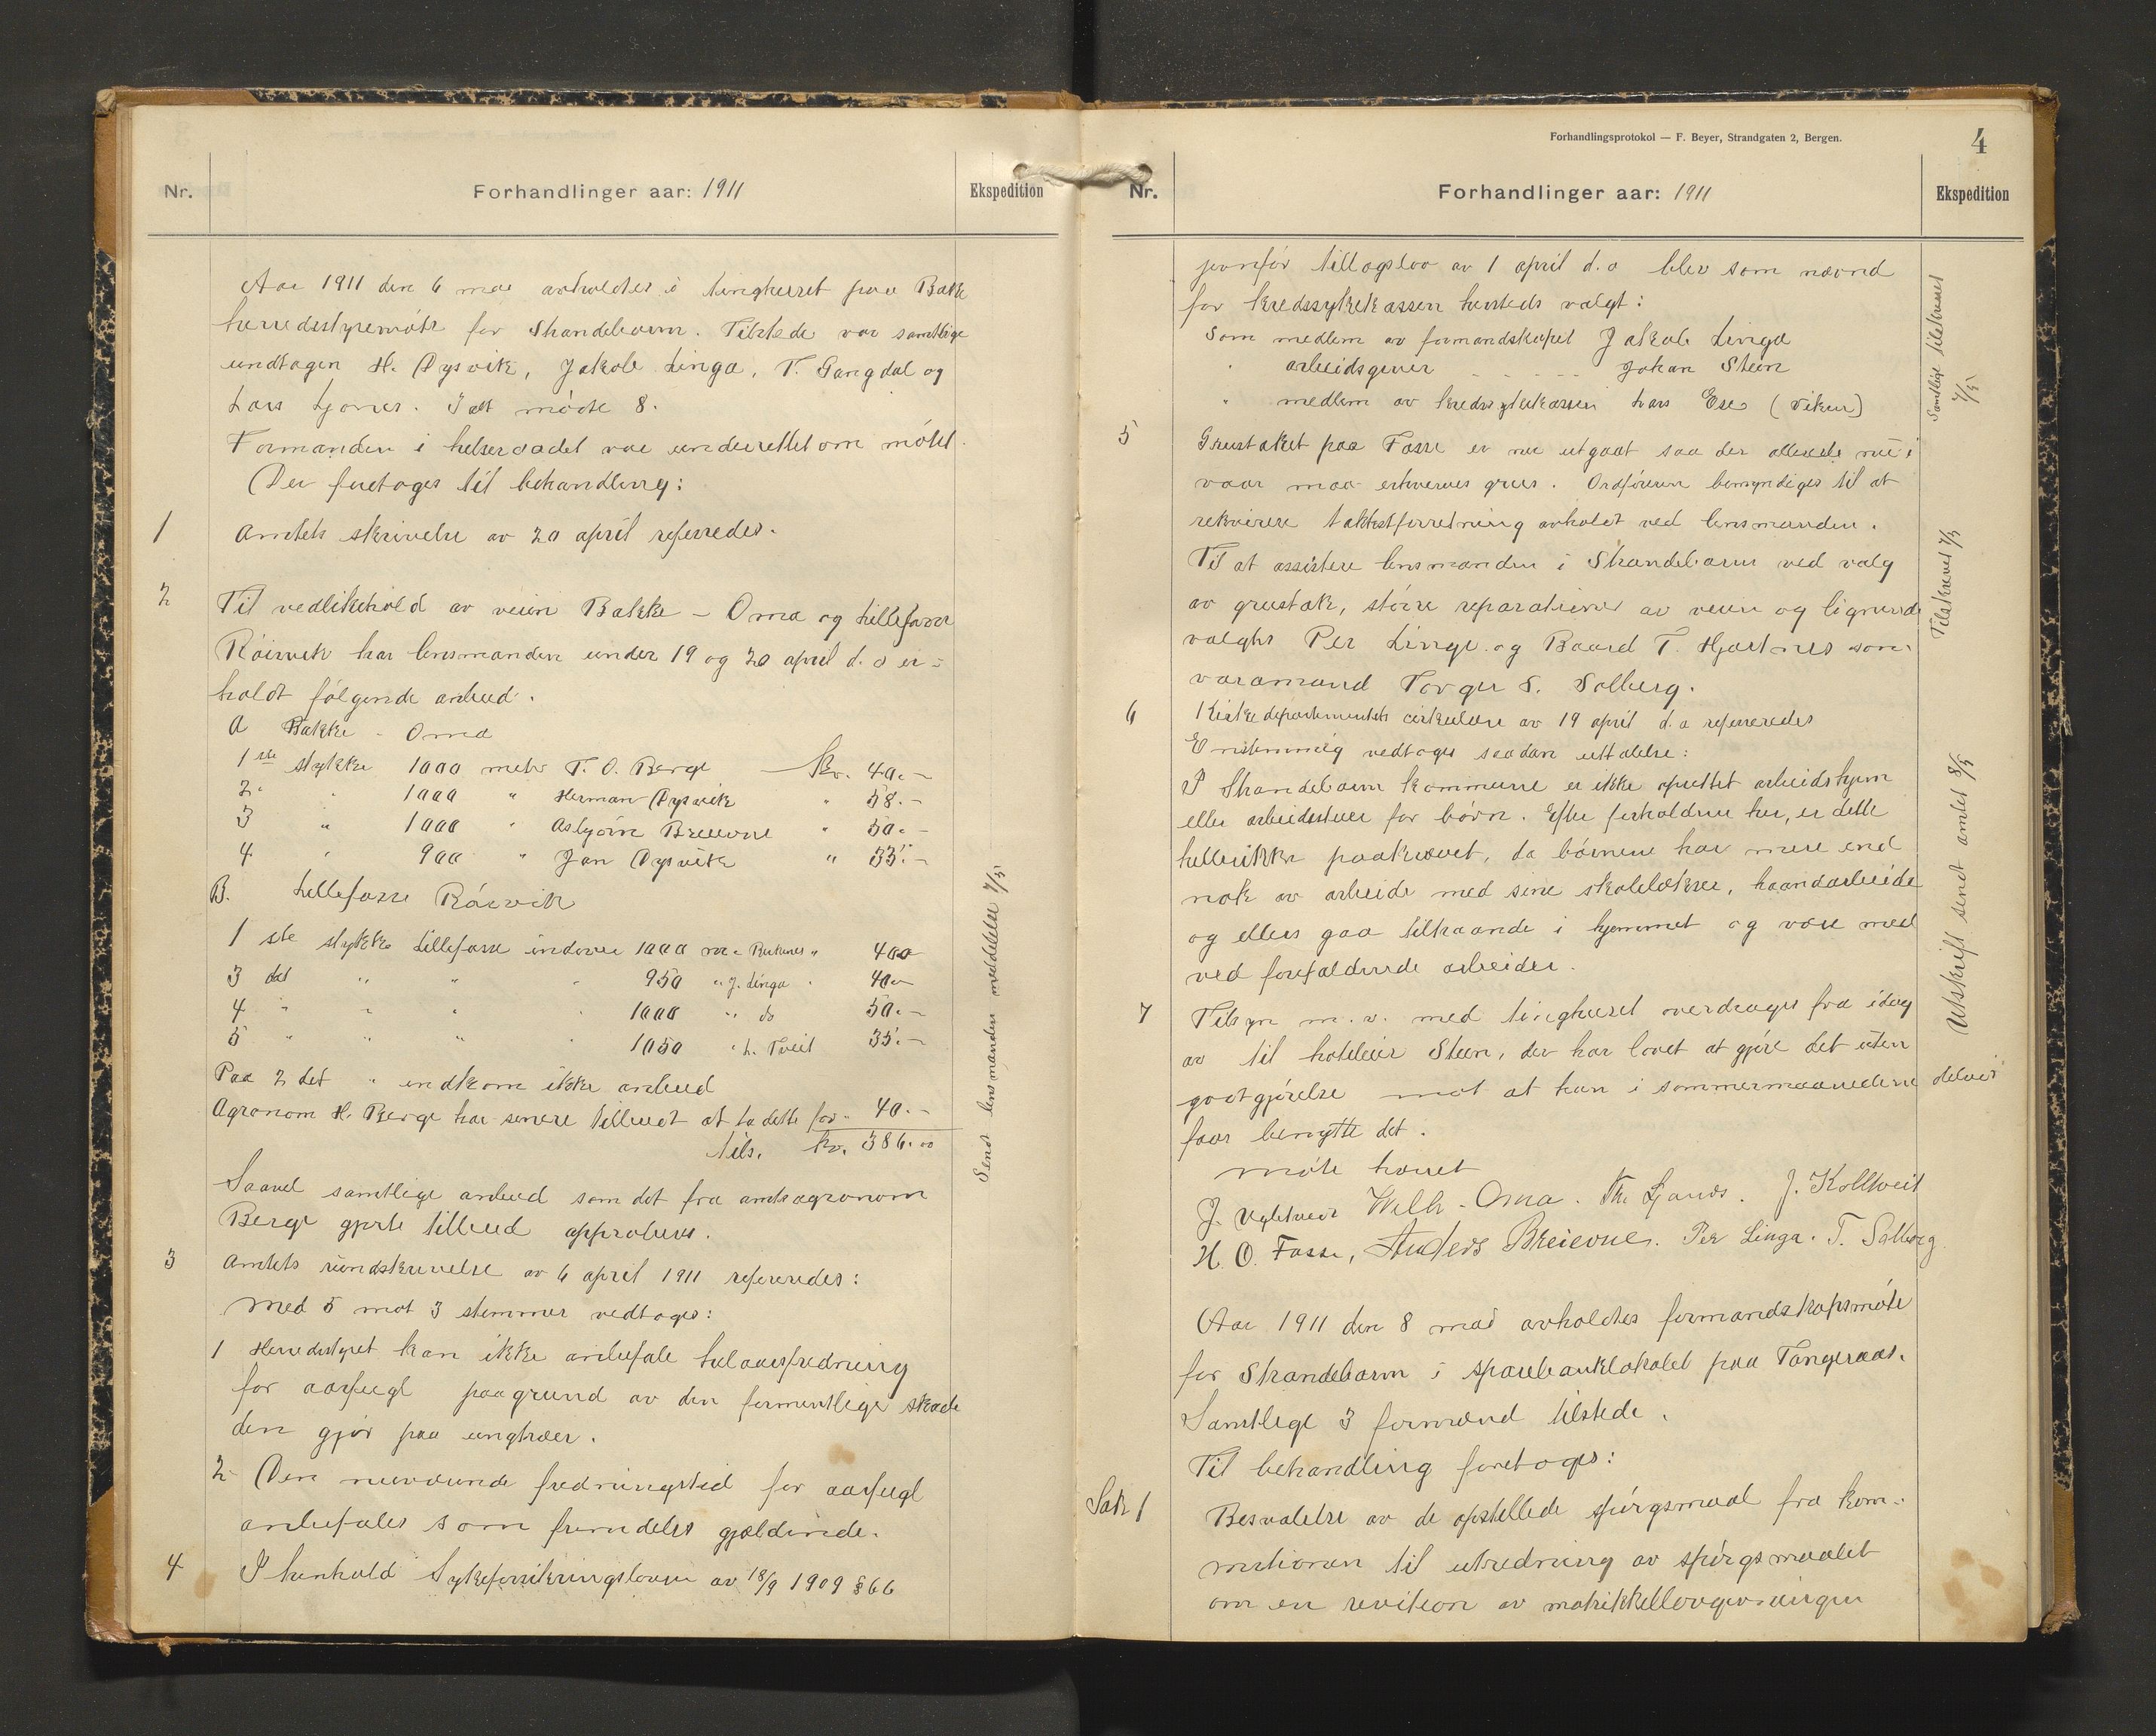 Nr.
Forhandlinger aar: 1911
Ekspedition
Aar 1911 den 6 mai avholdtes i tinghuset paa Bakke
herredsstyremøte for Strandebarm. Tilstede var samtlige
undtagen H. Dysvik, Jakob Linga, T. Gangdal og
Lars Ljones. I alt møtte 8.
Formanden i helseraadet var underrettet om møtet.
Der foretoges til behandling:
1 Amtets skrivelse av 20 april referredes.
2 Til vedlikehold av veien Bakke – Oma og Lillefosse
Röisvik har lensmanden under 19 og 20 april d. a er-
holdt følgende anbud.
A Bakke - Oma
1ste stykke 1000 meter T. O. Berge Kr. 40.–
2 " 1000 " Herman Dysvik " 58.–
3 " 1000 " Asbjörn Breievne " 50.–
4 " 900 " Jan Dysvik " 33.–
B. Lillefosse Röisvik
1ste stykke Lillefosse indover 1000 m " "
3 det " " " 950 " J. Linga " 40.–
4 " " " " 1000 " do 50.–
5 " " " " 1050 " L. Tveit 35.–
Paa 2 det " indkom ikke anbud
Agronom H. Berge har senere tilbudt at ta dette for " 40.–
tils. kr. 386.00
Saavel samtlige anbud som det fra amtsagronom
Berge gjorte tilbud approberes.
3 Amtets rundskrivelse av 6 april 1911 refereredes:
Med 5 mot 3 stemmer vedtoges:
1 Herredsstyret kan ikke anbefale helaarsfredning
for aarfugl paagrund av den formentlige skade
den gjör paa ungtrær.
2 Den nuværende fredningstid for aarfugl
anbefales som fremdeles gjældende.
4 I henhold Sykeforsikringsloven av 18/9 1909 § 66
Sendt lensmanden meddelelse 7/5
Forhandlingsprotokol — F. Beyer, Strandgaten 2, Bergen.
4
Nr.
Forhandlinger aar: 1911
Ekspedition
jevnfør tillægslov av 1 april d. a blev som nævnd
for kredssykekassen hersteds valgt:
Som medlem av formandskapet Jakob Linga
" arbeidsgiver - - - - - Johan Steen
" medlem av kredssykekassen Lars Ese (Viken)
5 Grustaket paa Fosse er nu utgaat saa der allerede nu i
vaar maa erhverves grus. Ordføreren bemyndiges til at
rekvirere takstforretning avholdt ved lensmanden.
Til at assistere lensmanden i Strandebarm ved valg
av grustak, större reparationer av veien og lignende
valgtes Per Linge og Baard T. Hjartnes som
varamand Torger S. Solberg.
6 Kirkedepartementets cirkulære av 19 april d. a refereredes
Enstemmig vedtoges saadan uttalelse:
I Strandebarm kommune er ikke oprettet arbeidshjem
eller arbeidsstuer for børn. Efter forholdene her, er dette
hellerikke paakrævet, da børnene har mere end
nok av arbeide med sine skolelekser, haandarbeide
og ellers gaa tilhaande i hjemmet og være med
ved forefaldende arbeider.
7 Tilsyn m. v. med tinghuset overdrages fra idag
av til hoteleier Steen, der har lovet at gjøre det uten
godtgjørelse mot at han i sommermaanederne delvis
faar benytte det.
Møte hævet
J. Wilh. Oma. J. Kolltveit
H. O. Fosse, Anders Breievne. Per Linga. T. Solberg
Aar 1911 den 8 mai avholdtes formandskapsmøte
for Strandebarm i sparebanklokalet paa Tangeraas.
Samtlige 3 formænd tilstede.
Til behandling foretoges:
Sak 1 Besvarelse av de opstillede spørgsmaal fra kom-
missionen til utredning av spørgsmaalet
om en revision av matrikkellovgivningen
Samtlige tilskrevet 7/5
Tilskrevet 7/5
Utskrift sendt amtet 8/5